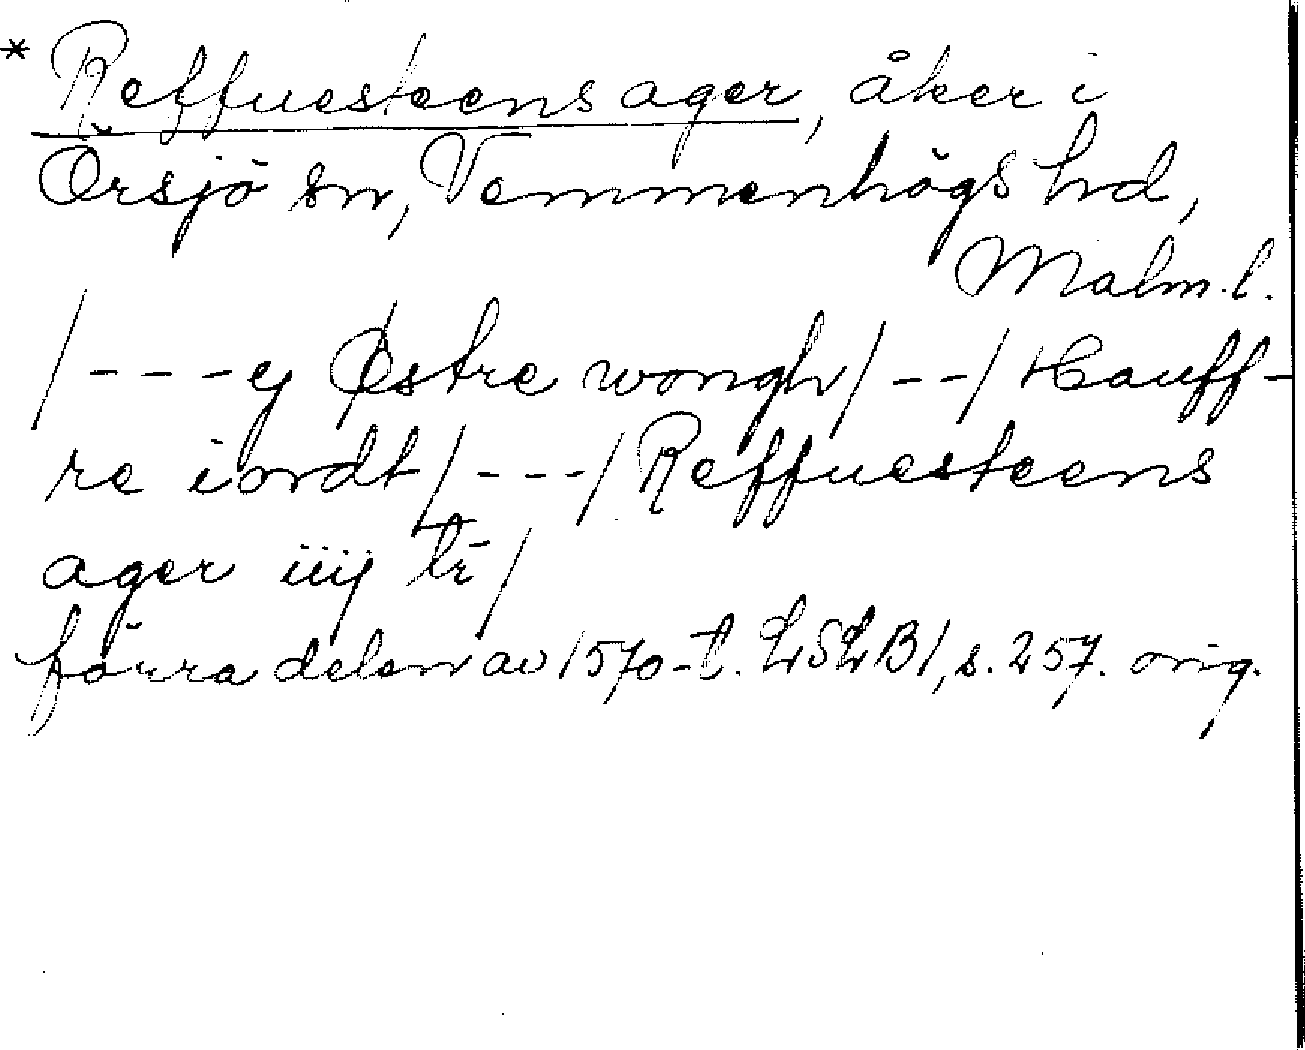 * Reffuesteens ager, åker i
Örsjö sn, Vemmenhögs hd,
Malm.l.
/---ej Østre wongh/--/Hauff-
re iordt/---/Reffuesteens
ager iiij
förra delen av 1570-t. LSLB1, s. 257. orig.